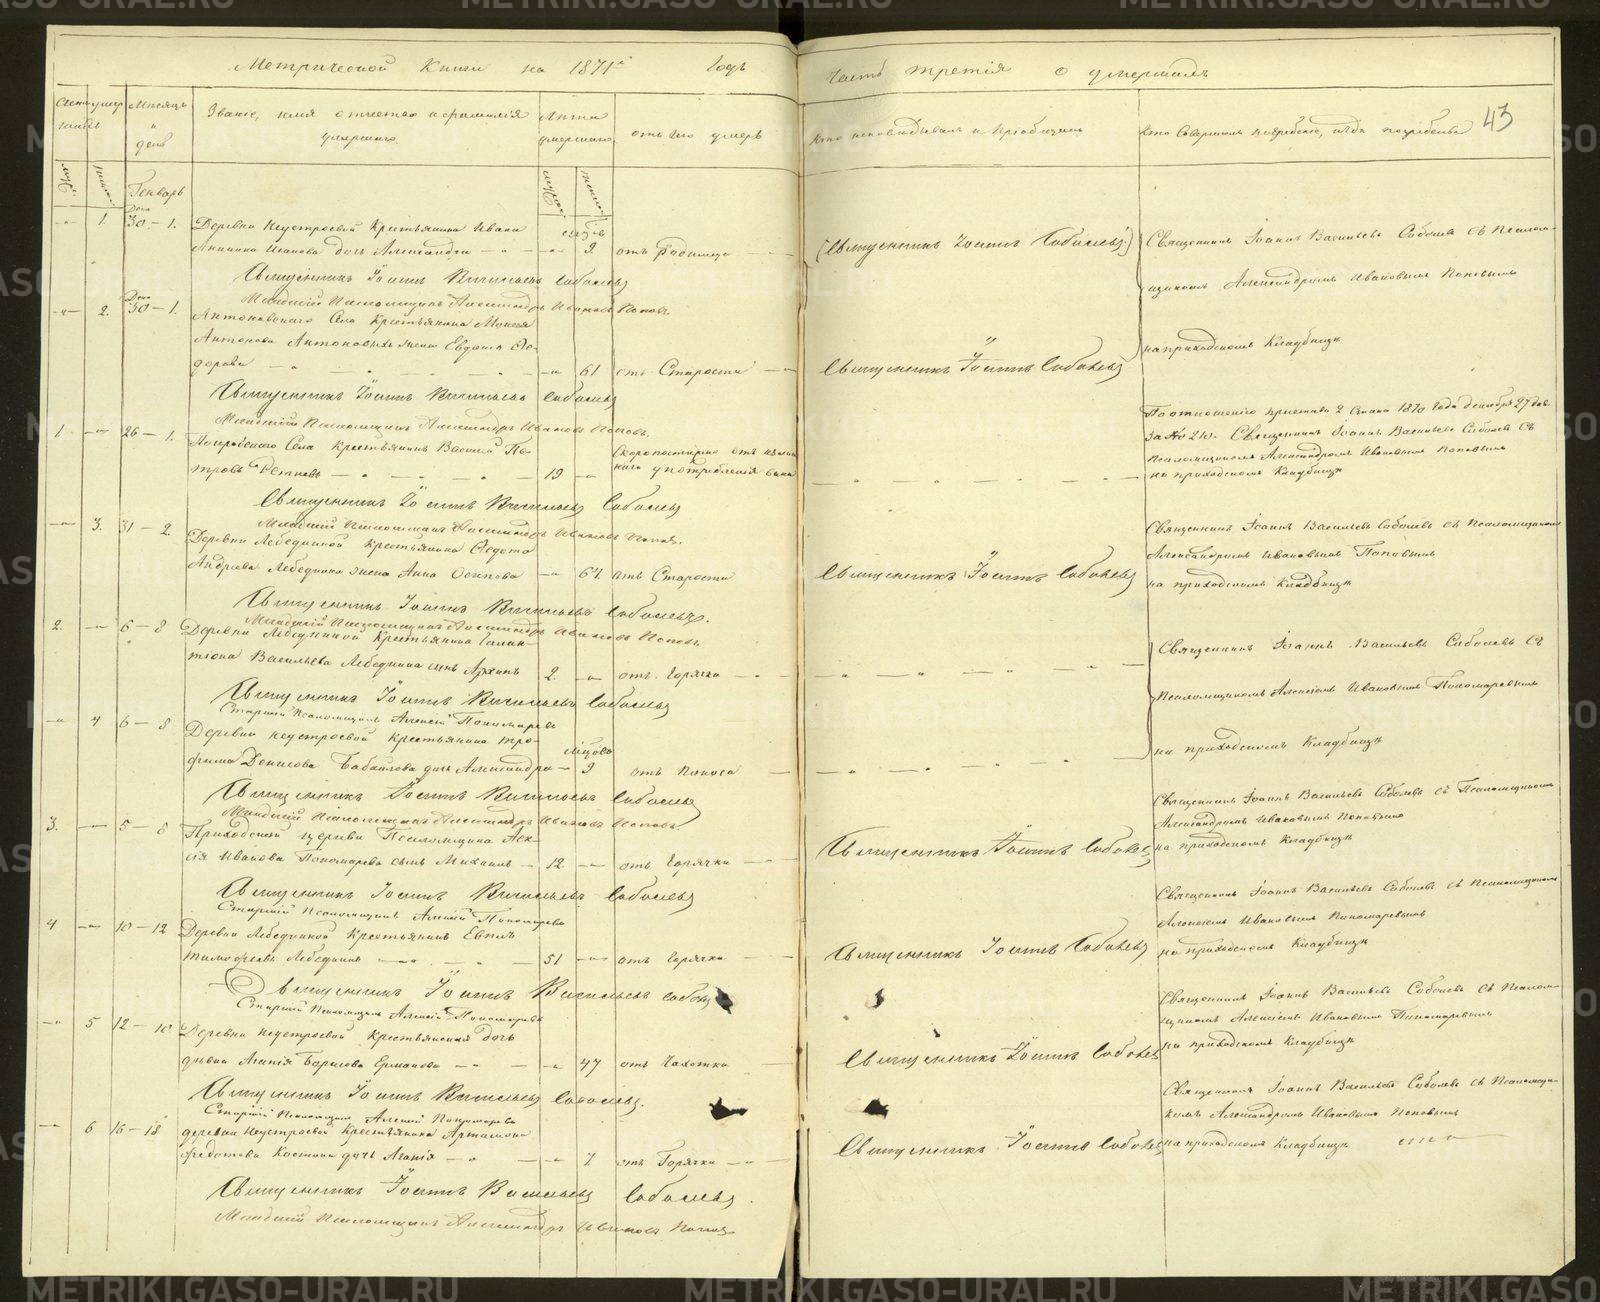 Метрической Книги на 1871й Годъ
Часть третія о умершихъ
43
Счетъ умер
шихъ
Мѣсяцъ
и
день
Званіе, имя отчество и фамилія
умершаго
Лѣта
умершаго
отъ чего умеръ
Кто исповѣдывалъ и пріобщалъ
Кто совершалъ погребеніе, и гдѣ погребены
Генварь
1. Дека 30 – 1. Деревни Неустроевой Крестьянина Ивана
Иванова дочь Александра 2 отъ Родимца
(Священникъ Іоаннъ Соболевъ)
Священникъ Іоаннъ Васильевъ Соболевъ съ Псалом-
щикомъ Александромъ Ивановымъ Поповымъ
на приходскомъ Кладбищѣ
Священникъ Іоаннъ Васильевъ Соболевъ
Младшій Псаломщикъ Александръ Ивановъ Поповъ.
2. Дека 30 – 1. Крестьянина Моисея
Антонова Антоновыхъ жена Евдокія Ѳе-
дорова 61 отъ Старости
Священникъ Іоаннъ Соболевъ
Священникъ Іоаннъ Васильевъ Соболевъ
Младшій Псаломщикъ Александръ Ивановъ Поповъ.
1 26 – 1. Села Крестьянинъ Василій Пе-
тровъ 19 Скоропостижно отъ
употребленія вина
По отношенію пристава 2 стана 1870 года декабря 27 дня
за № 210. Священникъ Іоаннъ Васильевъ Соболевъ съ
Псаломщикомъ Александромъ Ивановымъ Поповымъ
на приходскомъ Кладбищѣ
Священникъ Іоаннъ Васильевъ Соболевъ
Младшій Псаломщикъ Александръ Ивановъ Поповъ.
3. 31 – 2. Деревни Лебедкиной Крестьянина Ѳедота
Андреева Лебедкина жена Анна Осипова 64 отъ Старости
Священникъ Іоаннъ Соболевъ
Священникъ Іоаннъ Васильевъ Соболевъ съ Псаломщикомъ
Александромъ Ивановымъ Поповымъ
на приходскомъ Кладбищѣ
Священникъ Іоаннъ Васильевъ Соболевъ.
Младшій Псаломщикъ Александръ Ивановъ Поповъ.
2. 6 – 8 Деревни Лебедкиной Крестьянина Галак-
тіона Васильева Лебедкина сынъ Архипъ 2. отъ Горячки
Священникъ Іоаннъ Васильевъ Соболевъ съ
Псаломщикомъ Алексіемъ Ивановымъ Пономаревымъ
на приходскомъ Кладбищѣ
Священникъ Іоаннъ Васильевъ Соболевъ
Старшій Псаломщикъ Алексій Пономаревъ
4 6 – 8 Деревни Неустроевой Крестьянина Тро-
фима Денисова Бабайлова дочь Александра мѣсяцов 9 отъ Поноса
Священникъ Іоаннъ Васильевъ Соболевъ
Младшій Псаломщикъ Александръ Ивановъ Поповъ.
3. 5 – 8 Приходской церкви Псаломщика Алек-
сія Иванова Пономарева сынъ Михаилъ 12 отъ Горячки
Священникъ Іоаннъ Соболевъ
Священникъ Іоаннъ Васильевъ Соболевъ съ Псаломщикомъ
Александромъ Ивановымъ Поповымъ
на приходскомъ Кладбищѣ
Священникъ Іоаннъ Васильевъ Соболевъ
Старшій Псаломщикъ Алексій Пономаревъ
4 10 – 12 Деревни Лебедкиной Крестьянинъ Евплъ
Тимофеевъ Лебедкинъ 51 отъ Горячки
Священникъ Іоаннъ Соболевъ
Священникъ Іоаннъ Васильевъ Соболевъ съ Псаломщикомъ
Алексіемъ Ивановымъ Пономаревымъ
на приходскомъ Кладбищѣ
Священникъ Іоаннъ Васильевъ Соболевъ
Старшій Псаломщикъ Алексій Пономаревъ
5 12 – 10 Деревни Неустроевой Крестьянская дочь
дивка Агапія Борисова Ермакова 47 отъ Чахотки
Священникъ Іоаннъ Соболевъ
Священникъ Іоаннъ Васильевъ Соболевъ съ Псалом-
щикомъ Алексіемъ Ивановымъ Пономаревымъ
на приходскомъ Кладбищѣ
Священникъ Іоаннъ Васильевъ Соболевъ.
Старшій Псаломщикъ Алексій Пономаревъ
6 16 – 18 деревни Неустроевой Крестьянина Артамона
Федотова Костина дочь Агапія 7 отъ Горячки
Священникъ Іоаннъ Соболевъ
Священникъ Іоаннъ Васильевъ Соболевъ съ Псаломщи-
комъ Александромъ Ивановымъ Поповымъ
на приходскомъ Кладбищѣ
Священникъ Іоаннъ Васильевъ Соболевъ.
Младшій Псаломщикъ Александръ Ивановъ Поповъ
METRIKI.GASO-URAL.RU